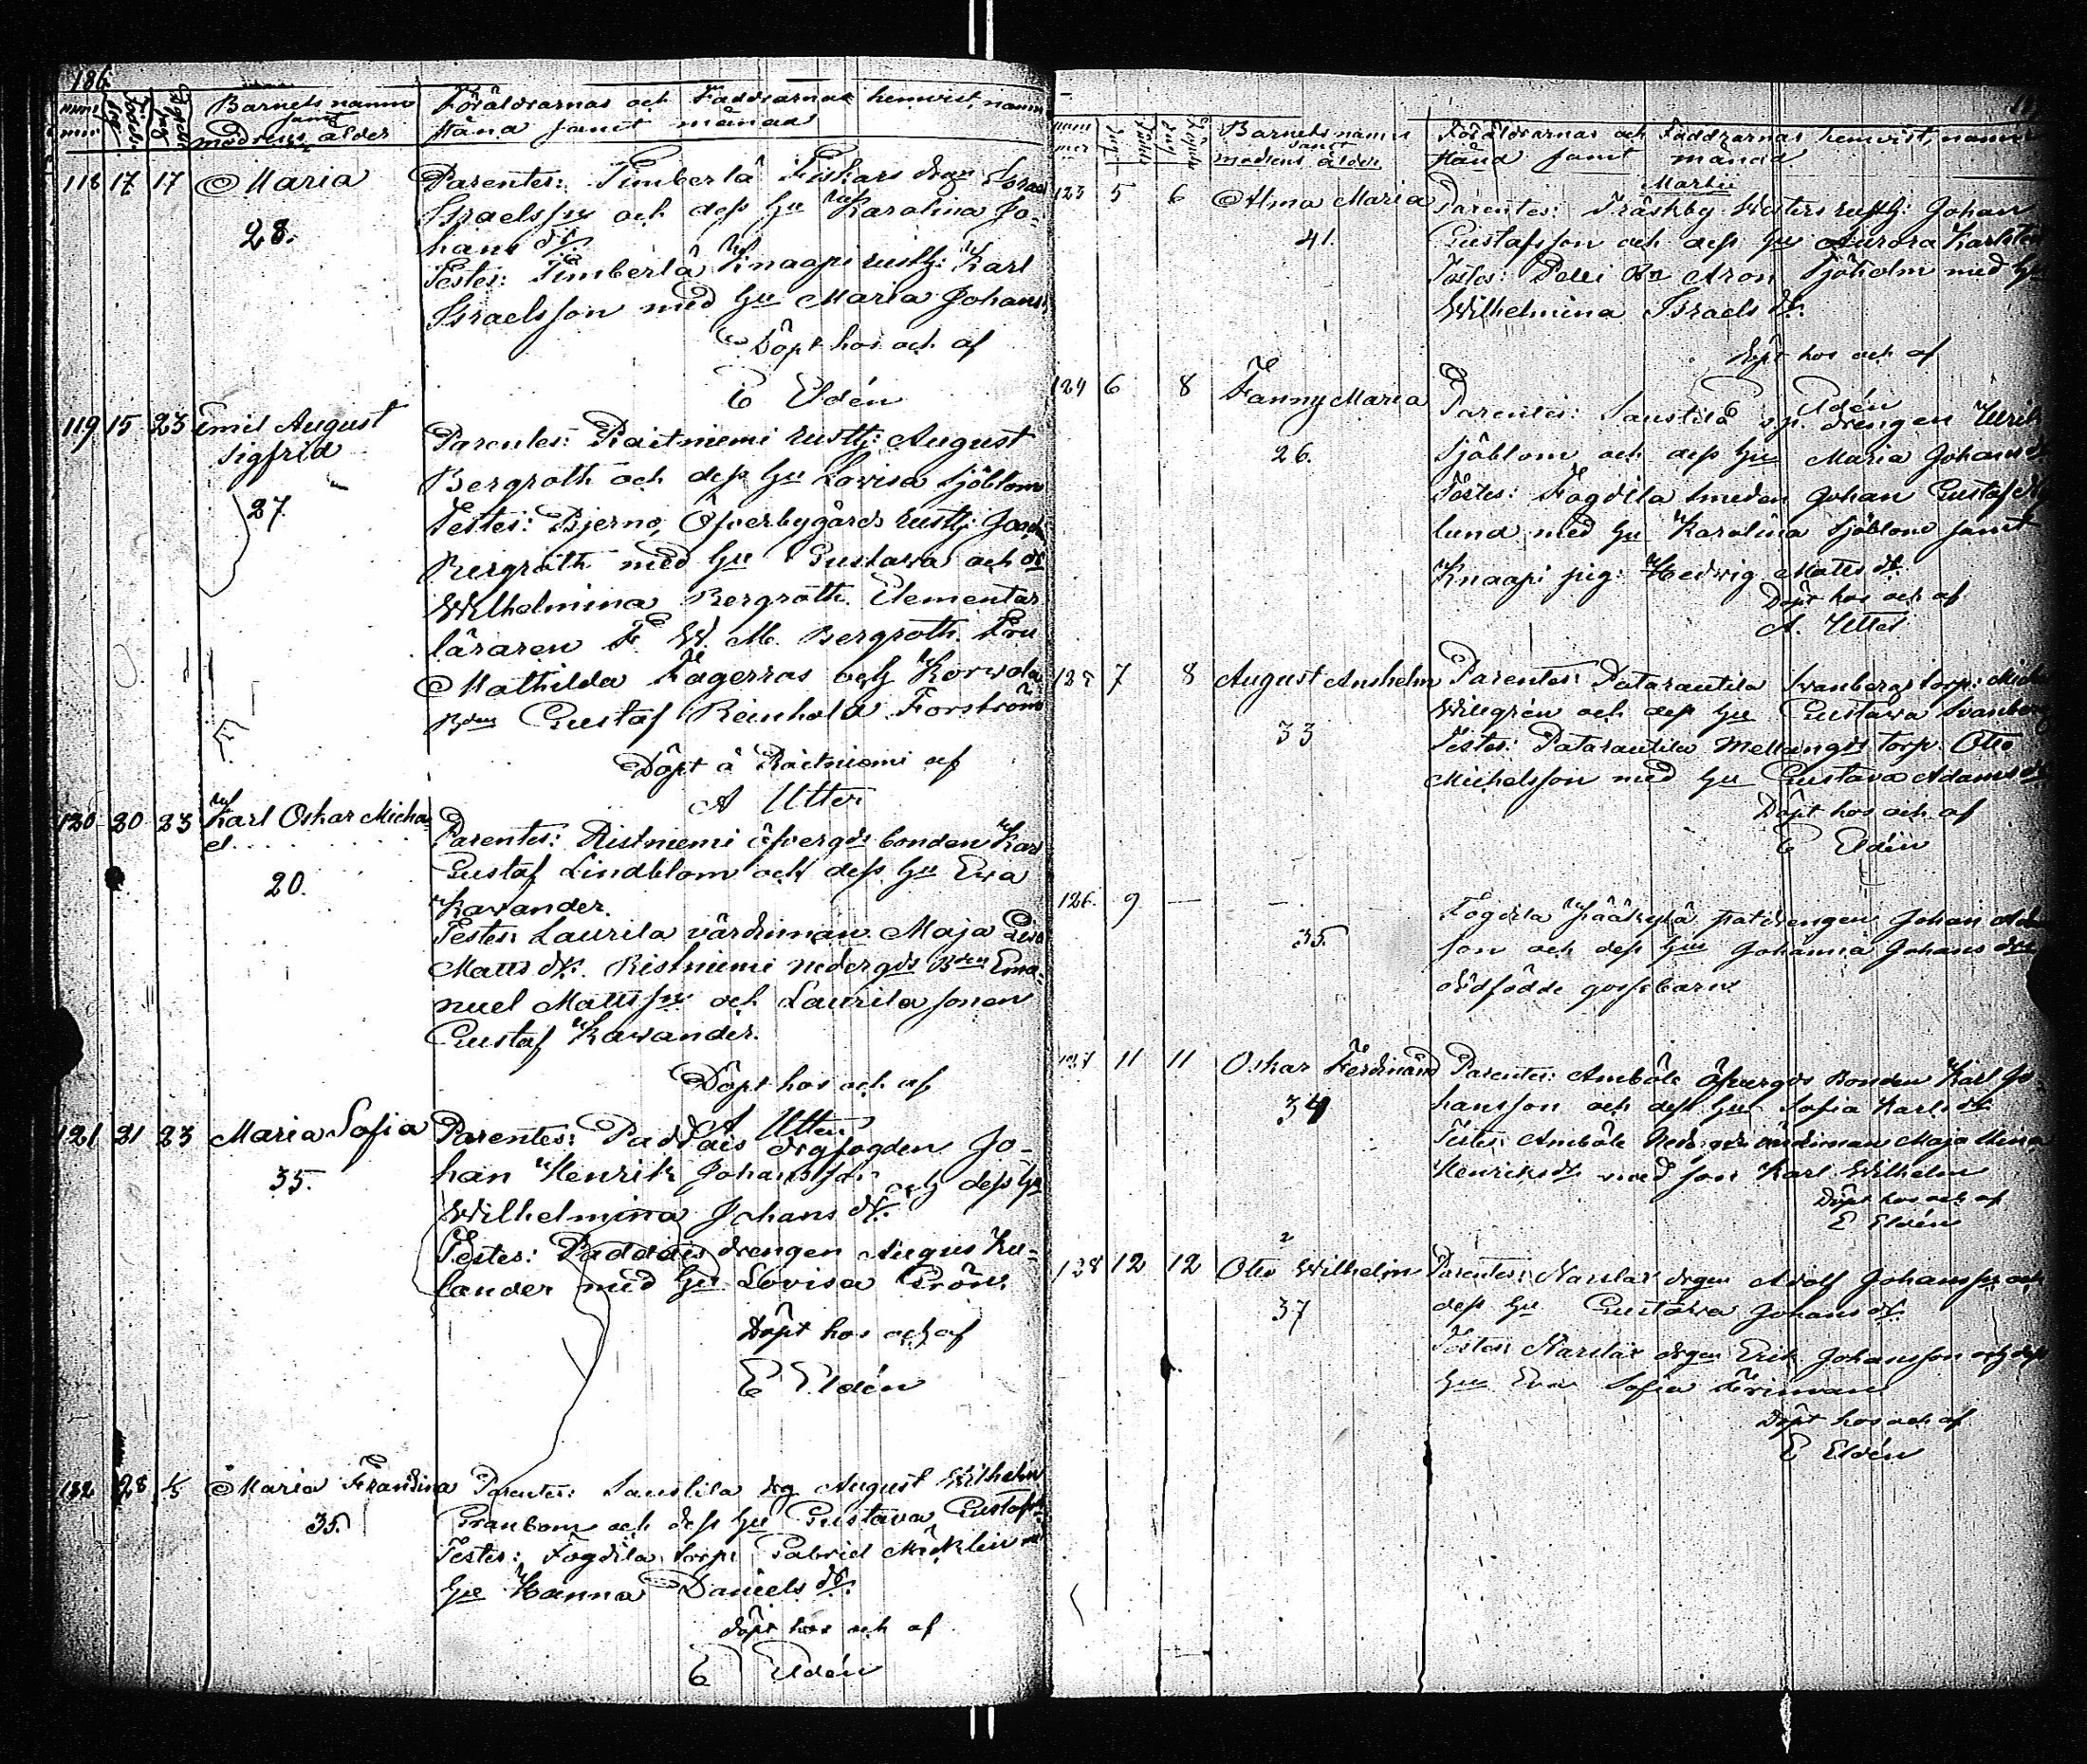 186
Barnets namn
samt
modrens ålder
Föräldrarnas och Faddrarnas hemvist, namn
stånd samt månad
118 17 17 Maria
28.
Parentes: Timberlå Fiskars
Israelsson och dess hu Karolina Jo-
hans dr.
Testes: Timberlå Knaapi rusth: Karl
Israelsson med hu Maria Johans
Döpt hos och af
E Eldén
119 15 23 Emil August
Sigfrid
27
Parentes: Raitniemi rusth: August
Bergroth och dess hu Lovisa Sjöblom
Testes: Bjerno, Öfverbygårds rusth:
Bergroth med hu Gustava och dr
Wilhelmina Bergroth. Elementar
läraren F. W. M. Bergroth. Fru
Mathilda Fagerros och Korvola
Bden Gustaf Reinhold Forström
Döpt å Raitniemi af
A Utter
120 20 23 Karl Oskar Micha-
el
20.
Parentes: Ristniemi öfvergds bonden Karl
Gustaf Lindblom och dess hu Eva
Kavander.
Testes: Laurila värdinnan Maja Lisa
Matts dr. Ristniemi nedergds Bden Ema-
nuel Mattsson och Laurila sonen
Gustaf Kavander.
Döpt hos och af
A Utter
121 21 23 Maria Sofia
35.
Parentes: Paddais drgfogden Jo-
han Henrik Johansson och dess hu
Wilhelmina Johans dr.
Testes: Paddais drengen August Ku-
lander med hu Lovisa Grön.
Döpt hos och af
E Eldén
122 28 1/5 Maria Frandina
35.
Parentes: Saustila drg August Wilhelm
Granbom och dess hu Gustava Gustafs
Testes: Fogdila torp: Gabriel Mäcklin
hu Hanna Daniels dr.
döpt hos och af
E Eldén
Barnets namn
samt
modrens ålder
Föräldrarnas och Faddrarnas hemvist, namn
stånd samt månad
Martii
123 5 6 Alma Maria
41.
Parentes: Träskby Westers rusth: Johan
Gustafsson och dess hu Aurora Karlsten
Testes: Pelli Bn Aron Sjöholm med hu
Wilhelmina Israels dr.
döpt hos och af
E Eldén
124 6 8 Fanny Maria
26.
Parentes: Saustila sp. drengen Henrik
Sjöblom och dess hu Maria Johans
Testes: Fogdila smeden Johan Gustaf
lund med hu Karolina Sjöblom samt
Knaapi pig: Hedvig Matts dr.
Döpt hos och af
A. Utter
125 7 8 August Anshelm
33
Parentes: Patarautila Svanbergs torp: Mich
Willgrén och dess hu Gustava Svanberg
Testes: Patarautila Mellangds torp. Otto
Michelsson med hu Gustava Adams dr
Döpt hos och af
E Eldén
126. 9 — —
35.
Fogdila Jääkylä drengen Johan
son och dess hu Johanna Johans dr
dödfödde gossebarn
127 11 11 Oskar Ferdinand
34
Parentes: Amböle Öfvergds Bonden Karl Jo-
hansson och dess hu Sofia Karls dr
Testes: Amböle Nedergds värdinnan Maja Stina
Henriks dr med son Karl Wilhelm
Döpt hos och af
E Eldén
128 12 12 Otto Wilhelm
37
Parentes: Narslax drgen Adolf Johansson och
dess hu Gustava Johans dr.
Testes: Narslax drgen Erik Johansson och dess
hu Eva Sofia
Döpt hos och af
E Eldén